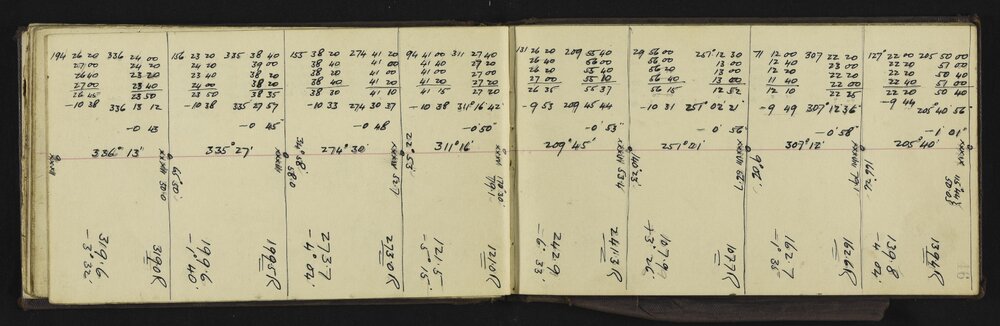 194 26 20 336 24 00
27 00 24 20
26 40 23 20
27 00 23 40
26 45 23 50
-10 38 336 13 12
-0 43
336° 13'
319.6
-3° 32'
156 23 20 335 38 40
23 20 39 00
23 40 38 20
24 00 38 20
23 50 38 35
-10 38 335 27 57
-0 45"
335° 27'
66° 50'
199.6
-1° 40'
199.5 R
155 38 20 274 41 20
38 40 41 00
38 20 41 00
38 40 41 20
38 30 41 10
-10 33 274 30 37
-0 48
274° 30'
273.7
-4° 04'
273.0 R
94 41 00 311 27 40
41 40 27 20
41 00 27 00
41 20 27 20
41 15 27 20
-10 38 311° 16' 42"
-0' 50"
311° 16'
22° 53'
121.5
-5° 15'
121.0 R
131 26 20 209 55 40
26 40 56 00
26 20 55 40
27 00 55 10
26 35 55 37
-9 53 209 45 44
-0' 53"
209° 45'
242.9
-6° 33'
241.3 R
29 56 00 251° 12 30
56 20 13 00
56 20 13 00
56 40 13 00
56 15 12 52
-10 31 251° 02' 21"
-0' 56"
251° 01'
107.9
+3° 26'
107.7 R
71 12 00 307 22 20
12 40 23 00
12 00 22 20
11 40 22 20
12 10 22 25
-9 49 307° 12' 36"
-0' 58"
307° 12'
162.7
-1° 35'
162.6 R
127° 22 00 205 50 00
22 20 51 00
22 20 50 40
22 40 51 00
22 20 50 40
-9 44 205° 40 56"
-1' 01"
205° 40'
139.8
-4° 04'
139.4 R
16